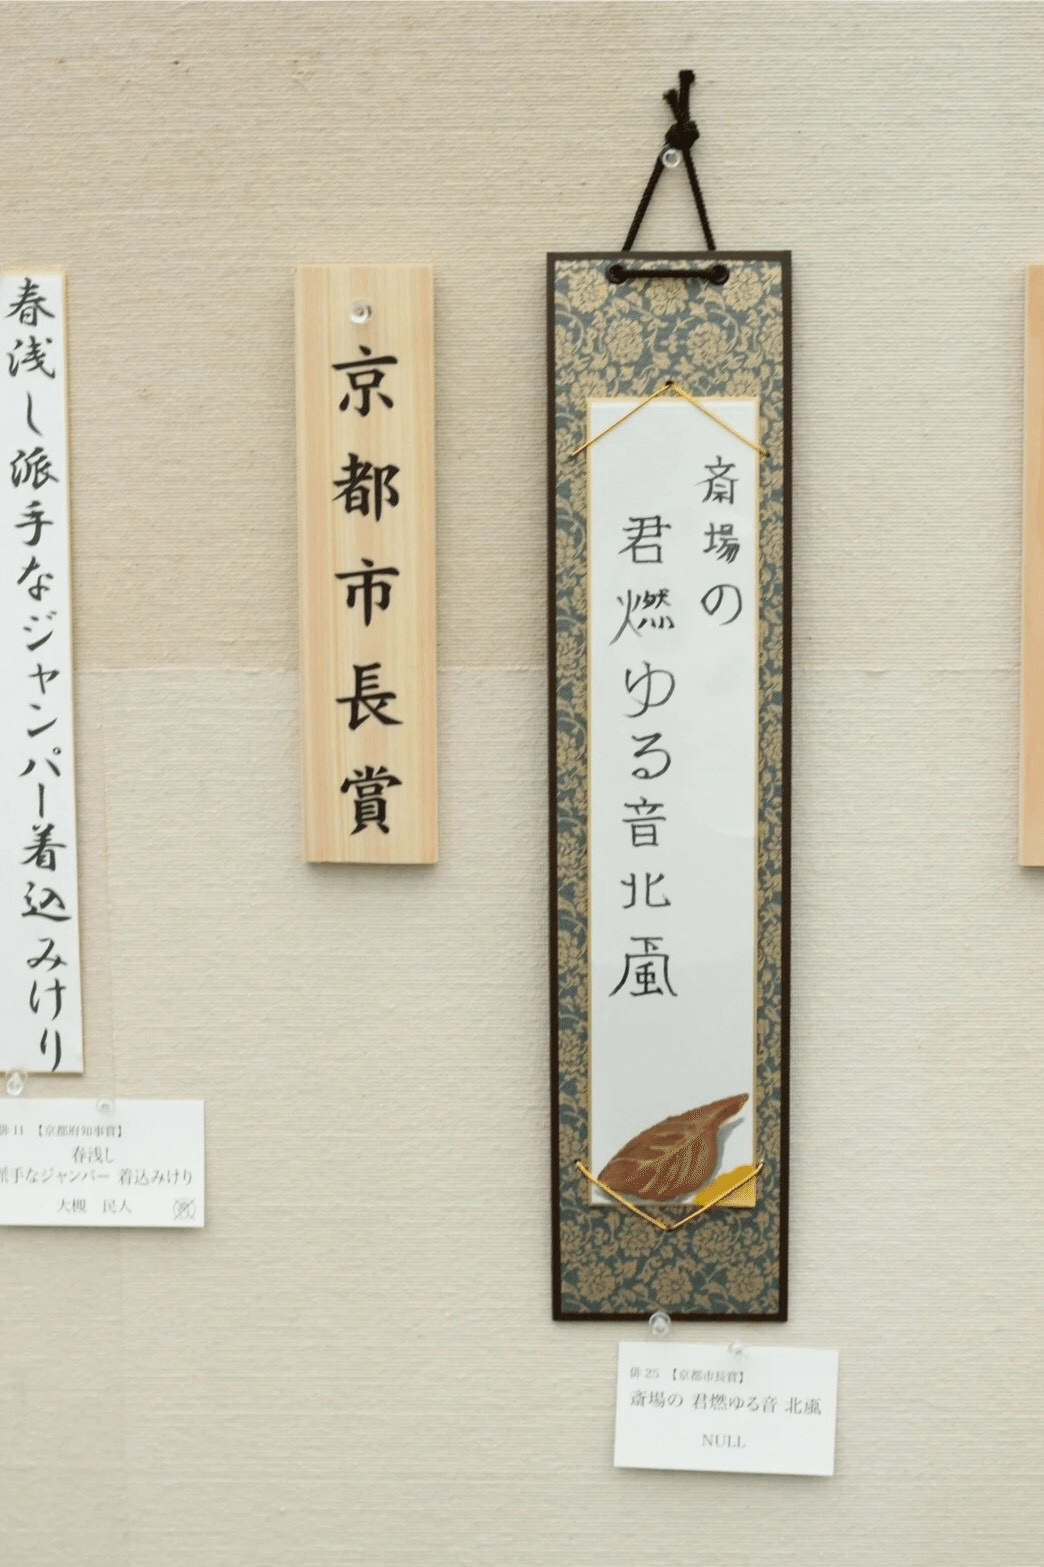 春浅し派手なジャンパー着込みけり
京都市長賞
斎場の
君燃ゆる音北颪
俳 11 【京都府知事賞】
春浅し
派手なジャンパー 着込みけり
大槻 民人
俳 25 【京都市長賞】
斎場の 君燃ゆる音 北颪
NULL